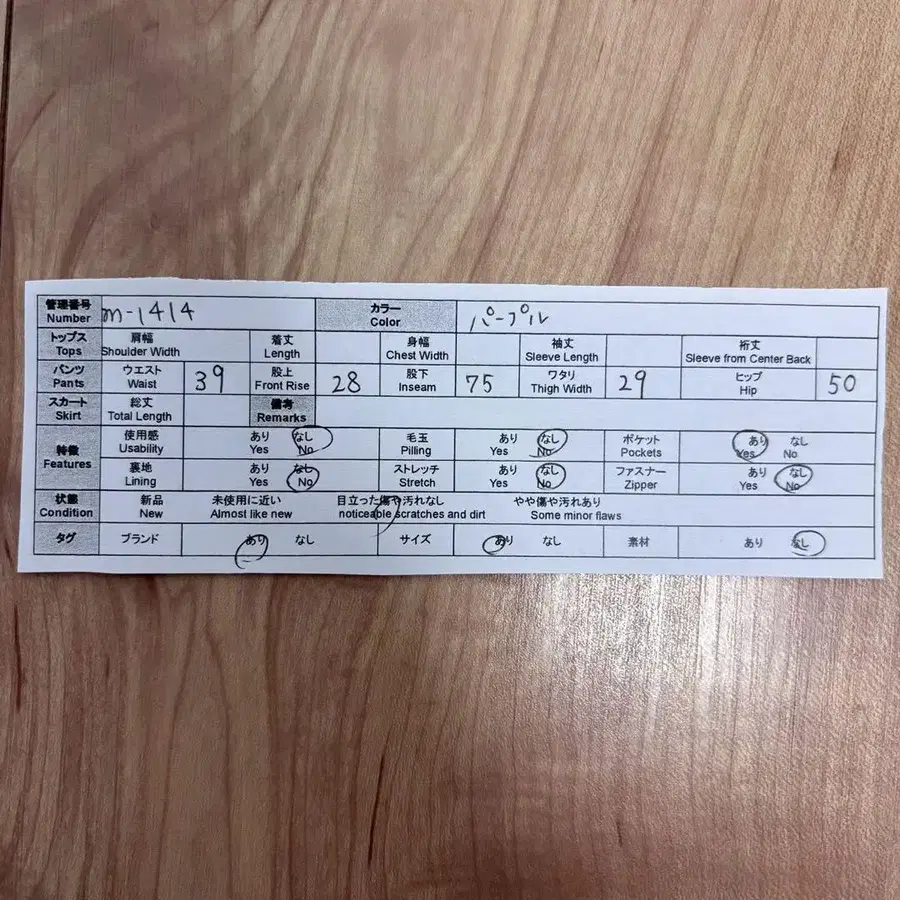 管理番号 Number m-1414 カラー Color パープル
トップス Tops 肩幅 Shoulder Width 着丈 Length 身幅 Chest Width 袖丈 Sleeve Length 裄丈 Sleeve from Center Back
パンツ Pants ウエスト Waist 39 股上 Front Rise 28 股下 Inseam 75 ワタリ Thigh Width 29 ヒップ Hip 50
スカート Skirt 総丈 Total Length 備考 Remarks
特徴 Features 使用感 Usability あり Yes なし No 毛玉 Pilling あり Yes なし No ポケット Pockets あり Yes なし No
裏地 Lining あり Yes なし No ストレッチ Stretch あり Yes なし No ファスナー Zipper あり Yes なし No
状態 Condition 新品 New 未使用に近い Almost like new 目立った傷や汚れなし noticeable scratches and dirt やや傷や汚れあり Some minor flaws
タグ ブランド あり なし サイズ あり なし 素材 あり なし